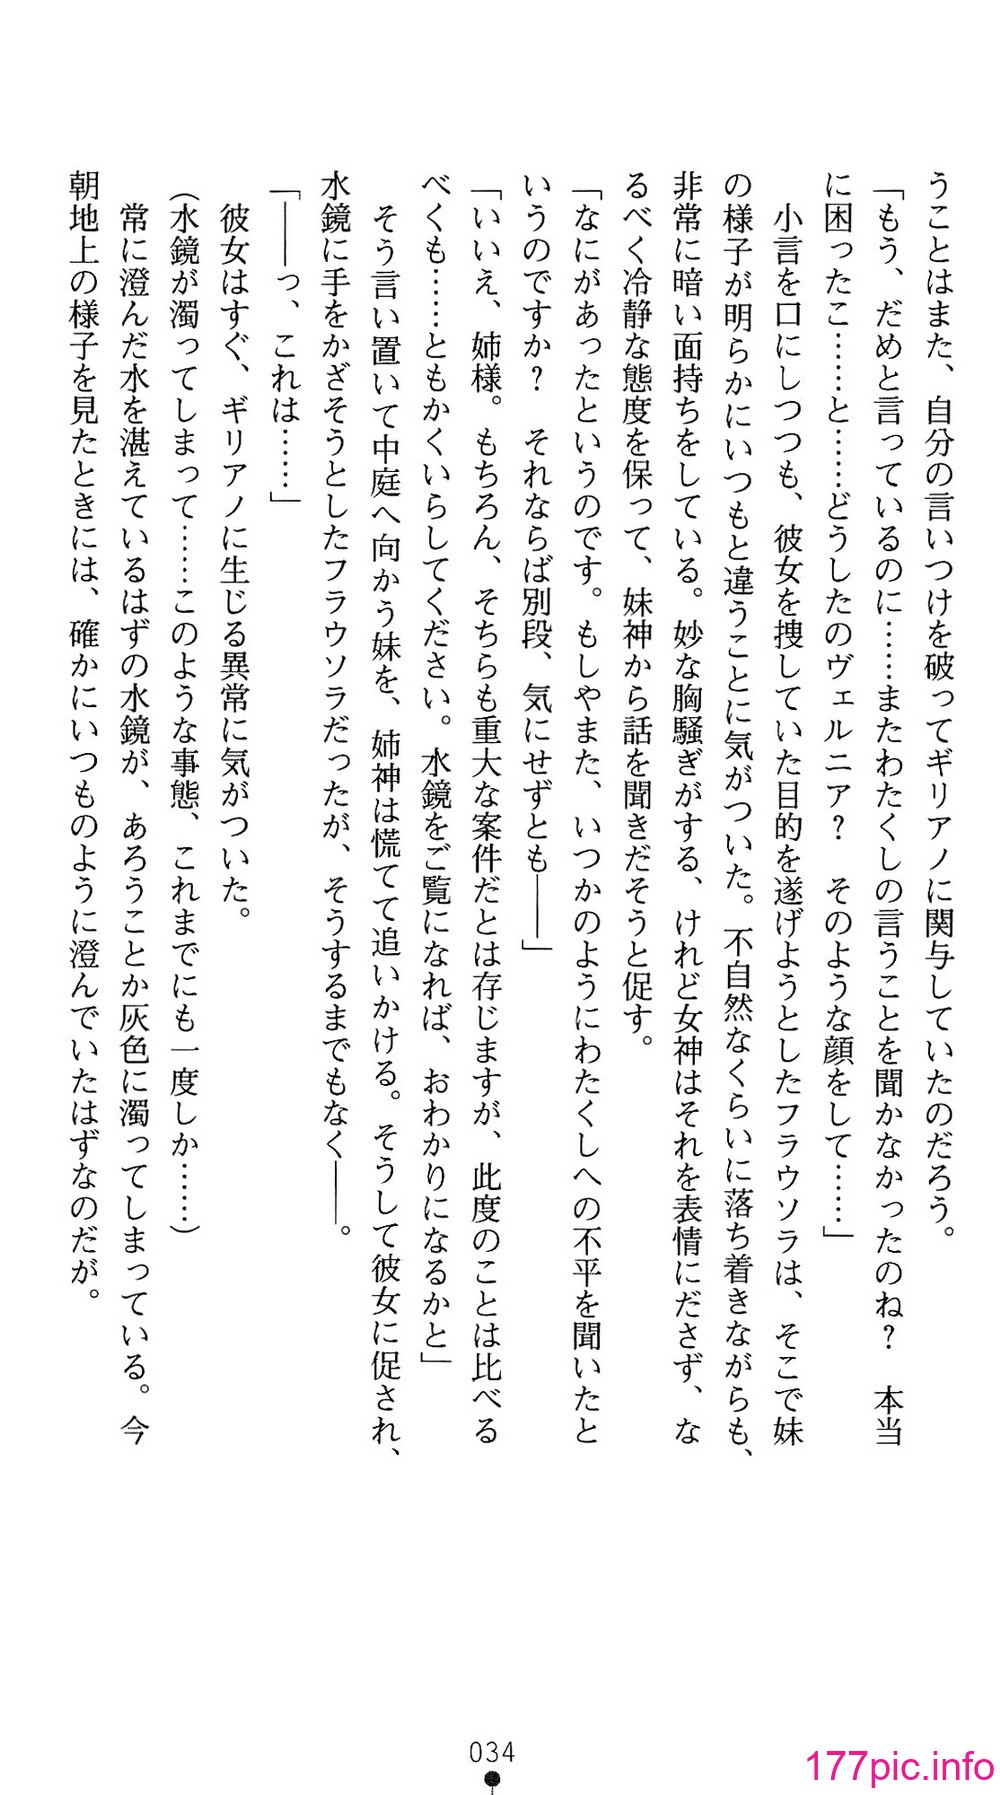 うことはまた、自分の言いつけを破ってギリアノに関与していたのだろう。
「もう、だめと言っているのに……またわたくしの言うことを聞かなかったのね？　本当
に困ったこ……と……どうしたのヴェルニア？　そのような顔をして……」
　小言を口にしつつも、彼女を捜していた目的を遂げようとしたフラウソラは、そこで妹
の様子が明らかにいつもと違うことに気がついた。不自然なくらいに落ち着きながらも、
非常に暗い面持ちをしている。妙な胸騒ぎがする、けれど女神はそれを表情にださず、な
るべく冷静な態度を保って、妹神から話を聞きだそうと促す。
「なにがあったというのです。もしやまた、いつかのようにわたくしへの不平を聞いたと
いうのですか？　それならば別段、気にせずとも――」
「いいえ、姉様。もちろん、そちらも重大な案件だとは存じますが、此度のことは比べる
べくも……ともかくいらしてください。水鏡をご覧になれば、おわかりになるかと」
　そう言い置いて中庭へ向かう妹を、姉神は慌てて追いかける。そうして彼女に促され、
水鏡に手をかざそうとしたフラウソラだったが、そうするまでもなく――。
「――っ、これは……」
　彼女はすぐ、ギリアノに生じる異常に気がついた。
（水鏡が濁ってしまって……このような事態、これまでにも一度しか……）
　常に澄んだ水を湛えているはずの水鏡が、あろうことか灰色に濁ってしまっている。今
朝地上の様子を見たときには、確かにいつものように澄んでいたはずなのだが。
034
177pic.info